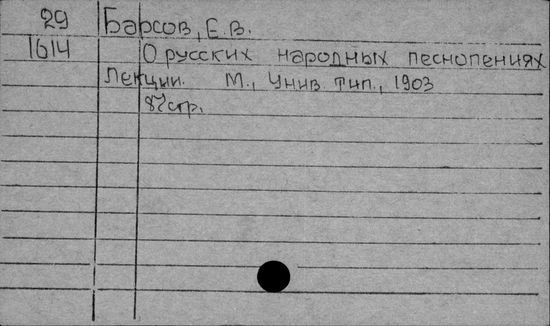 29 Барсов, Е.В.
1614 О русских народных песнопениях
Лекции. М., Унив. тип., 1903
82 стр.